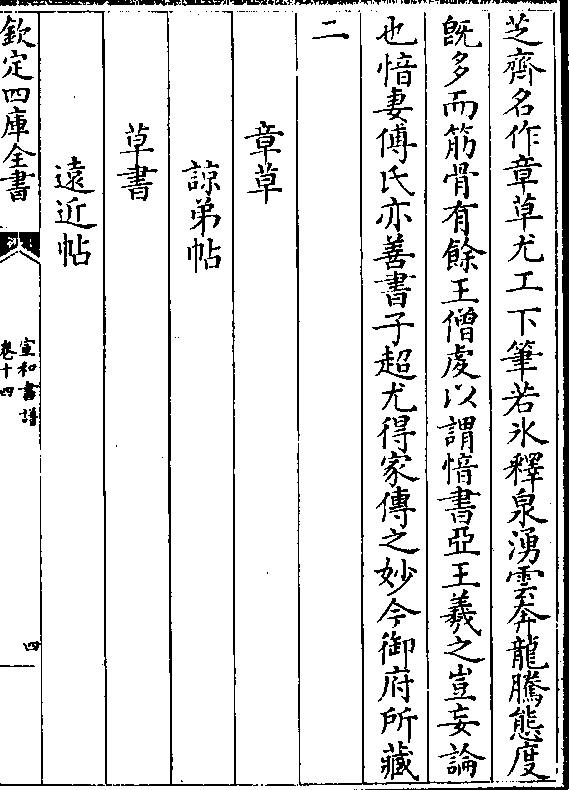 芝齊名作章草尤工下筆若氷釋泉湧雲奔龍騰態度
既多而筋骨有餘王僧虔以謂愔書亞王羲之豈妄論
也愔妻傅氏亦善書子超尤得家傳之妙今御府所藏
二
章草
諒弟帖
草書
遠近帖
欽定四庫全書
宣和書譜
卷十四
四